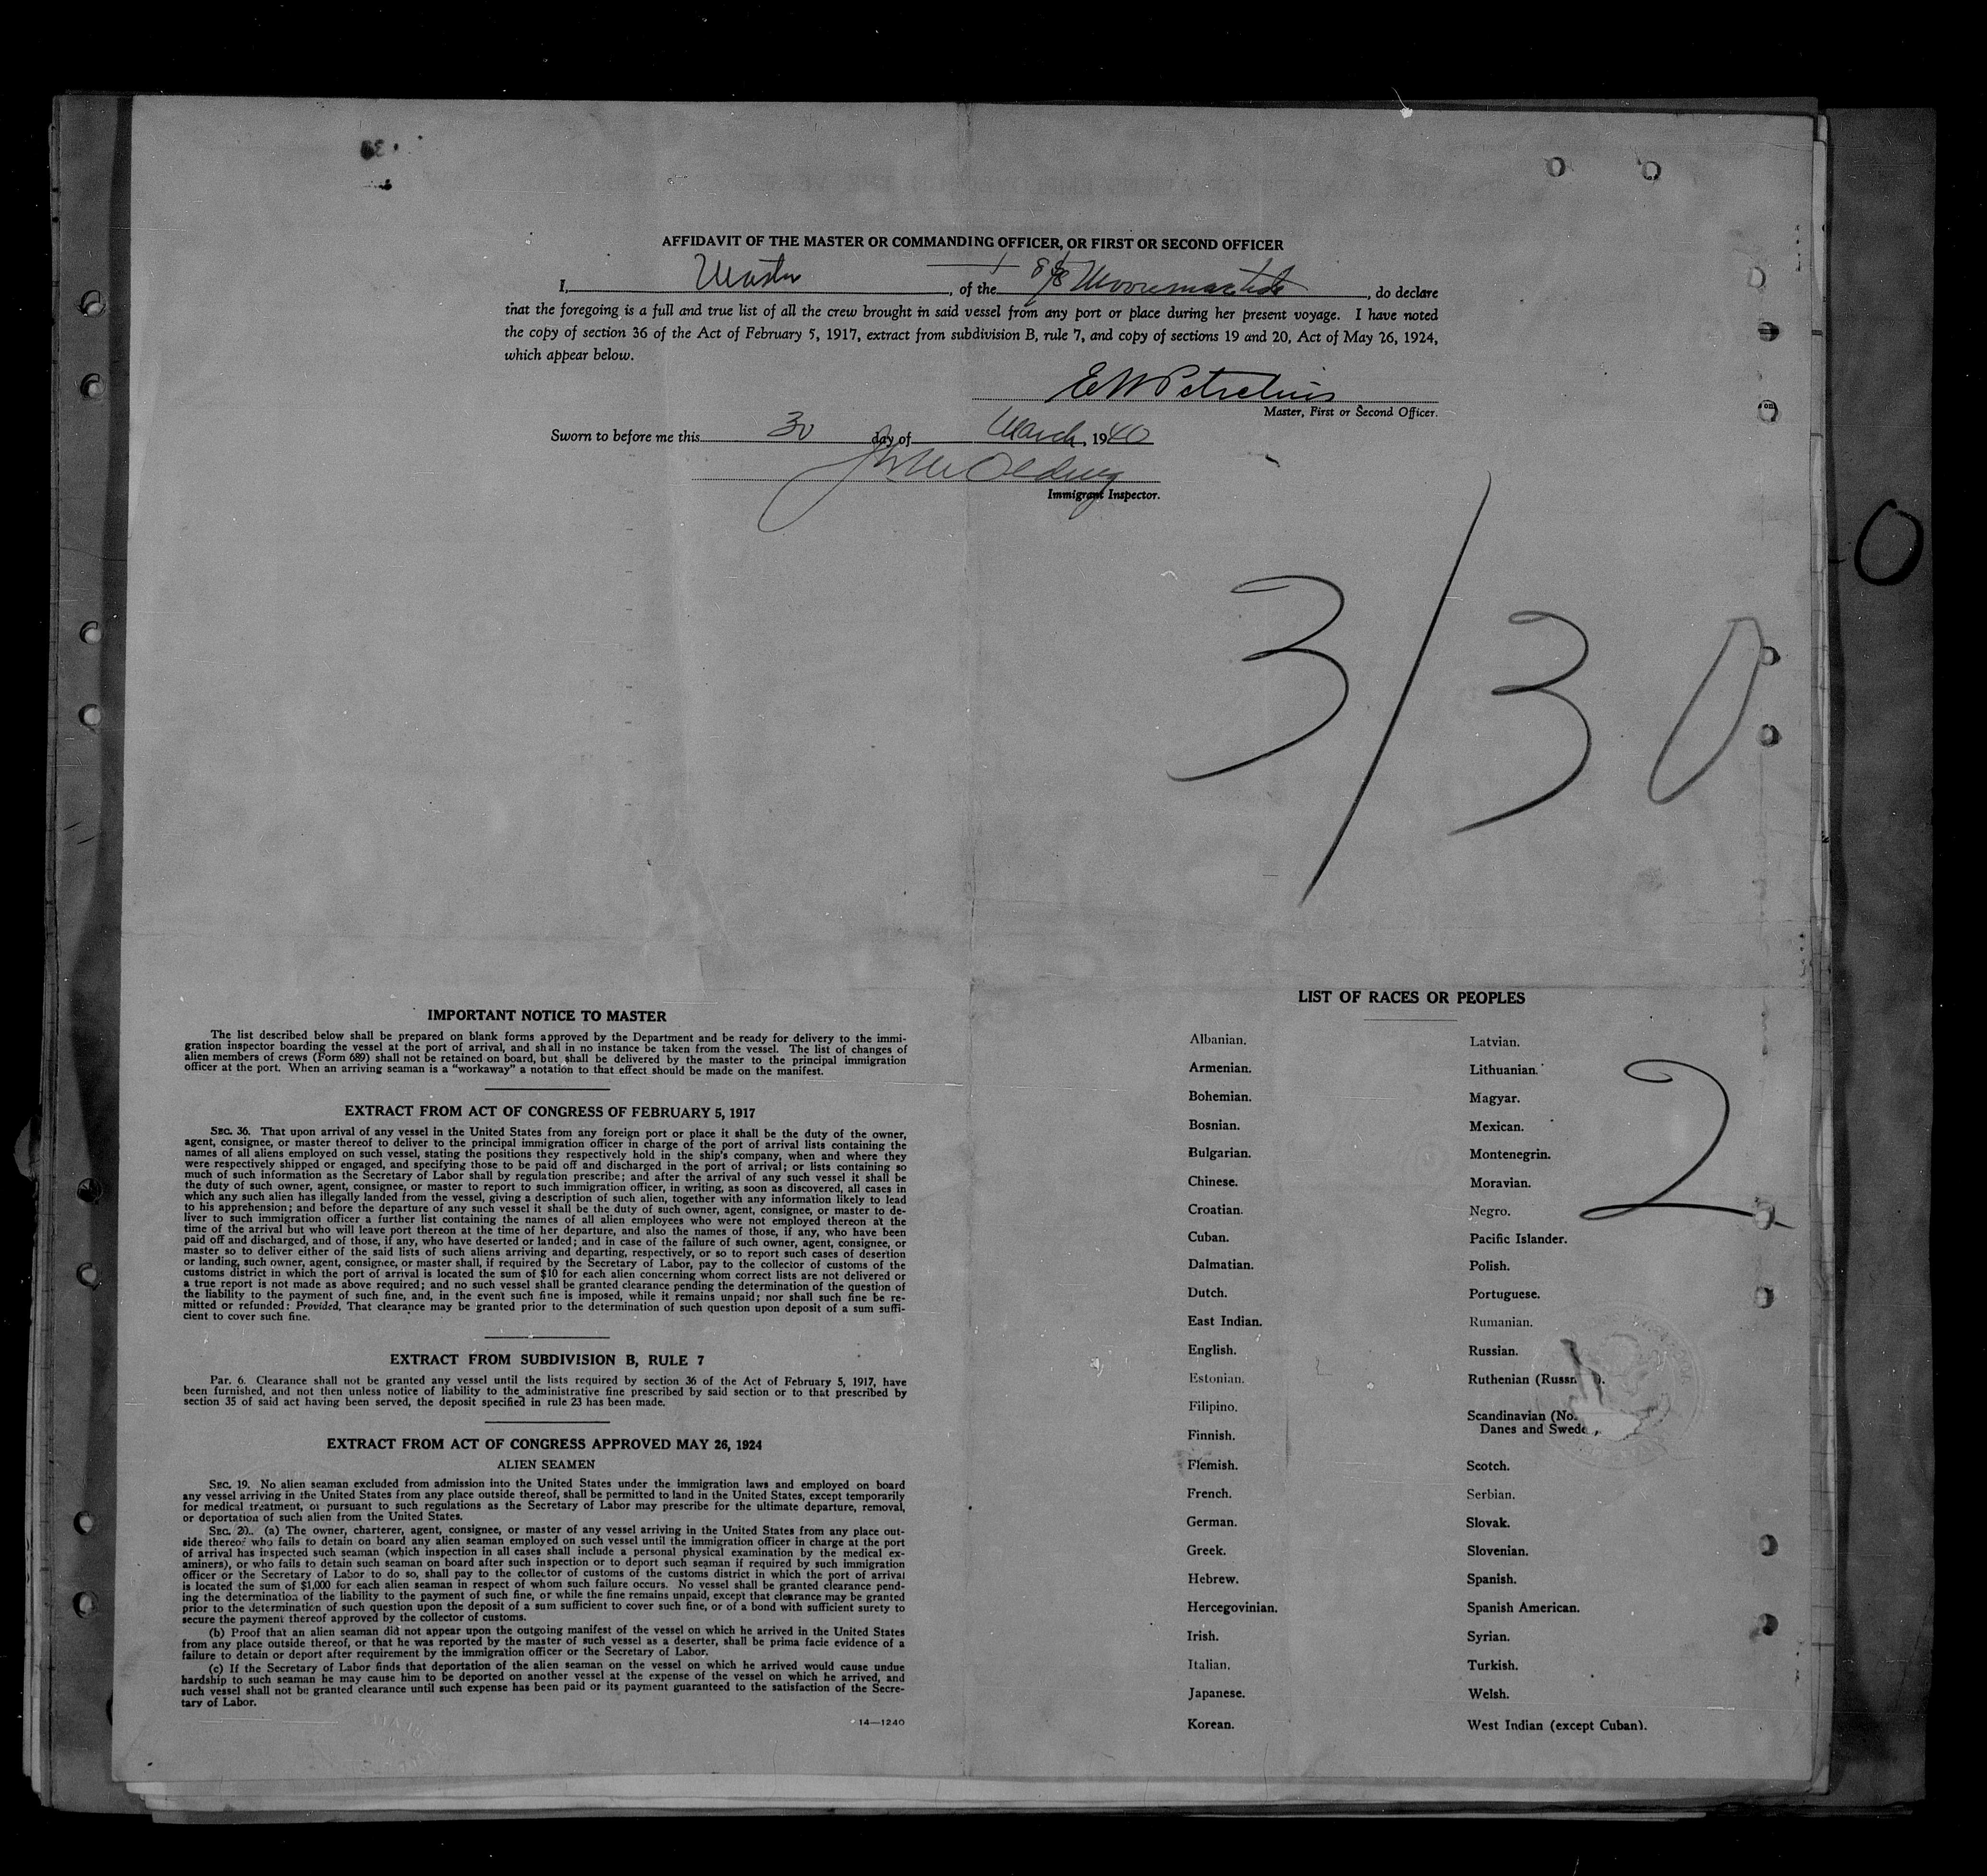 AFFIDAVIT OF THE MASTER OR COMMANDING OFFICER, OR FIRST OR SECOND OFFICER
I, Master, of the S/S Mooremactide, do declare
that the foregoing is a full and true list of all the crew brought in said vessel from any port or place during her present voyage. I have noted
the copy of section 36 of the Act of February 5, 1917, extract from subdivision B, rule 7, and copy of sections 19 and 20, Act of May 26, 1924,
which appear below.
E W Petrelius
Master, First or Second Officer.
Sworn to before me this 30 day of March, 1940
Immigrant Inspector.
3/30
0
IMPORTANT NOTICE TO MASTER
The list described below shall be prepared on blank forms approved by the Department and be ready for delivery to the immi-
gration inspector boarding the vessel at the port of arrival, and shall in no instance be taken from the vessel. The list of changes of
alien members of crews (Form 689) shall not be retained on board, but shall be delivered by the master to the principal immigration
officer at the port. When an arriving seaman is a "workaway" a notation to that effect should be made on the manifest.
EXTRACT FROM ACT OF CONGRESS OF FEBRUARY 5, 1917
SEC. 36. That upon arrival of any vessel in the United States from any foreign port or place it shall be the duty of the owner,
agent, consignee, or master thereof to deliver to the principal immigration officer in charge of the port of arrival lists containing the
names of all aliens employed on such vessel, stating the positions they respectively hold in the ship's company, when and where they
were respectively shipped or engaged, and specifying those to be paid off and discharged in the port of arrival; or lists containing so
much of such information as the Secretary of Labor shall by regulation prescribe; and after the arrival of any such vessel it shall be
the duty of such owner, agent, consignee, or master to report to such immigration officer, in writing, as soon as discovered, all cases in
which any such alien has illegally landed from the vessel, giving a description of such alien, together with any information likely to lead
to his apprehension; and before the departure of any such vessel it shall be the duty of such owner, agent, consignee, or master to de-
liver to such immigration officer a further list containing the names of all alien employees who were not employed thereon at the
time of the arrival but who will leave port thereon at the time of her departure, and also the names of those, if any, who have been
paid off and discharged, and of those, if any, who have deserted or landed; and in case of the failure of such owner, agent, consignee, or
master so to deliver either of the said lists of such aliens arriving and departing, respectively, or so to report such cases of desertion
or landing, such owner, agent, consignee, or master shall, if required by the Secretary of Labor, pay to the collector of customs of the
customs district in which the port of arrival is located the sum of $10 for each alien concerning whom correct lists are not delivered or
a true report is not made as above required; and no such vessel shall be granted clearance pending the determination of the question of
the liability to the payment of such fine, and, in the event such fine is imposed, while it remains unpaid; nor shall such fine be re-
mitted or refunded: Provided, That clearance may be granted prior to the determination of such question upon deposit of a sum suffi-
cient to cover such fine.
EXTRACT FROM SUBDIVISION B, RULE 7
Par. 6. Clearance shall not be granted any vessel until the lists required by section 36 of the Act of February 5, 1917, have
been furnished, and not then unless notice of liability to the administrative fine prescribed by said section or to that prescribed by
section 35 of said act having been served, the deposit specified in rule 23 has been made.
EXTRACT FROM ACT OF CONGRESS APPROVED MAY 26, 1924
ALIEN SEAMEN
SEC. 19. No alien seaman excluded from admission into the United States under the immigration laws and employed on board
any vessel arriving in the United States from any place outside thereof, shall be permitted to land in the United States, except temporarily
for medical treatment, or pursuant to such regulations as the Secretary of Labor may prescribe for the ultimate departure, removal,
or deportation of such alien from the United States.
SEC. 20. (a) The owner, charterer, agent, consignee, or master of any vessel arriving in the United States from any place out-
side thereof who fails to detain on board any alien seaman employed on such vessel until the immigration officer in charge at the port
of arrival has inspected such seaman (which inspection in all cases shall include a personal physical examination by the medical ex-
aminers), or who fails to detain such seaman on board after such inspection or to deport such seaman if required by such immigration
officer or the Secretary of Labor to do so, shall pay to the collector of customs of the customs district in which the port of arrival
is located the sum of $1,000 for each alien seaman in respect of whom such failure occurs. No vessel shall be granted clearance pend-
ing the determination of the liability to the payment of such fine, or while the fine remains unpaid, except that clearance may be granted
prior to the determination of such question upon the deposit of a sum sufficient to cover such fine, or of a bond with sufficient surety to
secure the payment thereof approved by the collector of customs.
(b) Proof that an alien seaman did not appear upon the outgoing manifest of the vessel on which he arrived in the United States
from any place outside thereof, or that he was reported by the master of such vessel as a deserter, shall be prima facie evidence of a
failure to detain or deport after requirement by the immigration officer or the Secretary of Labor.
(c) If the Secretary of Labor finds that deportation of the alien seaman on the vessel on which he arrived would cause undue
hardship to such seaman he may cause him to be deported on another vessel at the expense of the vessel on which he arrived, and
such vessel shall not be granted clearance until such expense has been paid or its payment guaranteed to the satisfaction of the Secre-
tary of Labor.
14—1240
LIST OF RACES OR PEOPLES
Albanian.
Armenian.
Bohemian.
Bosnian.
Bulgarian.
Chinese.
Croatian.
Cuban.
Dalmatian.
Dutch.
East Indian.
English.
Estonian.
Filipino.
Finnish.
Flemish.
French.
German.
Greek.
Hebrew.
Hercegovinian.
Irish.
Italian.
Japanese.
Korean.
Latvian.
Lithuanian.
Magyar.
Mexican.
Montenegrin.
Moravian.
Negro.
Pacific Islander.
Polish.
Portuguese.
Rumanian.
Russian.
Ruthenian (Russn
Scandinavian (No
Danes and Swede
Scotch.
Serbian.
Slovak.
Slovenian.
Spanish.
Spanish American.
Syrian.
Turkish.
Welsh.
West Indian (except Cuban).
2